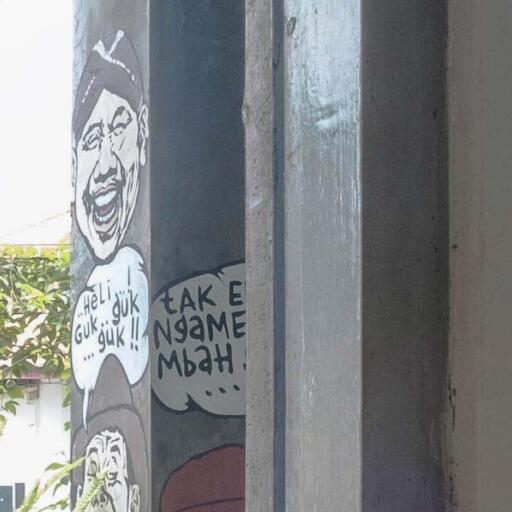 ..Heli !
Guk.. guk
...guk !!
tAK E
NgAME
MbAH
....